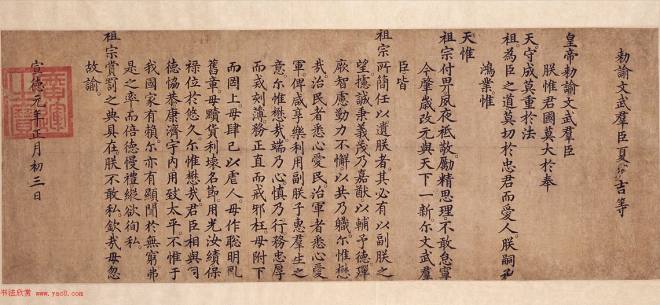 勅諭文武羣臣夏原吉等
皇帝勅諭文武羣臣
朕惟君國莫大於奉
天守成莫重於法
祖為臣之道莫切於忠君而愛人朕嗣
鴻業惟
天惟
祖宗付畀夙夜祗敬勵精思理不敢怠寧
今肇歲改元與天下一新尔文武羣
臣皆
祖宗所簡任以遺朕者其必有以副朕之
望攄誠秉義茂乃嘉猷以輔予德殫
厥智慮勤力不懈以共乃職尔惟懋
哉治民者悉心愛民治軍者悉心愛
軍俾咸享樂利用副朕子惠羣生之
意尔惟懋哉端乃心慎乃行務忠厚
而戒刻薄務正直而戒邪枉毋附下
而罔上毋肆己以虐人毋作聰明亂
舊章毋黷貨利壞名節用光汝績保
禄位於悠久尔惟懋哉君臣相與同
德恊恭康濟宇内用致太平不惟于
我國家有頼尔亦有顯聞於無窮弗
是之率而倍德慢禮縱欲徇私
祖宗賞罰之典具在朕不敢私欽哉毋忽
故諭
宣德元年正月初三日
书法欣赏 www.yac8.com